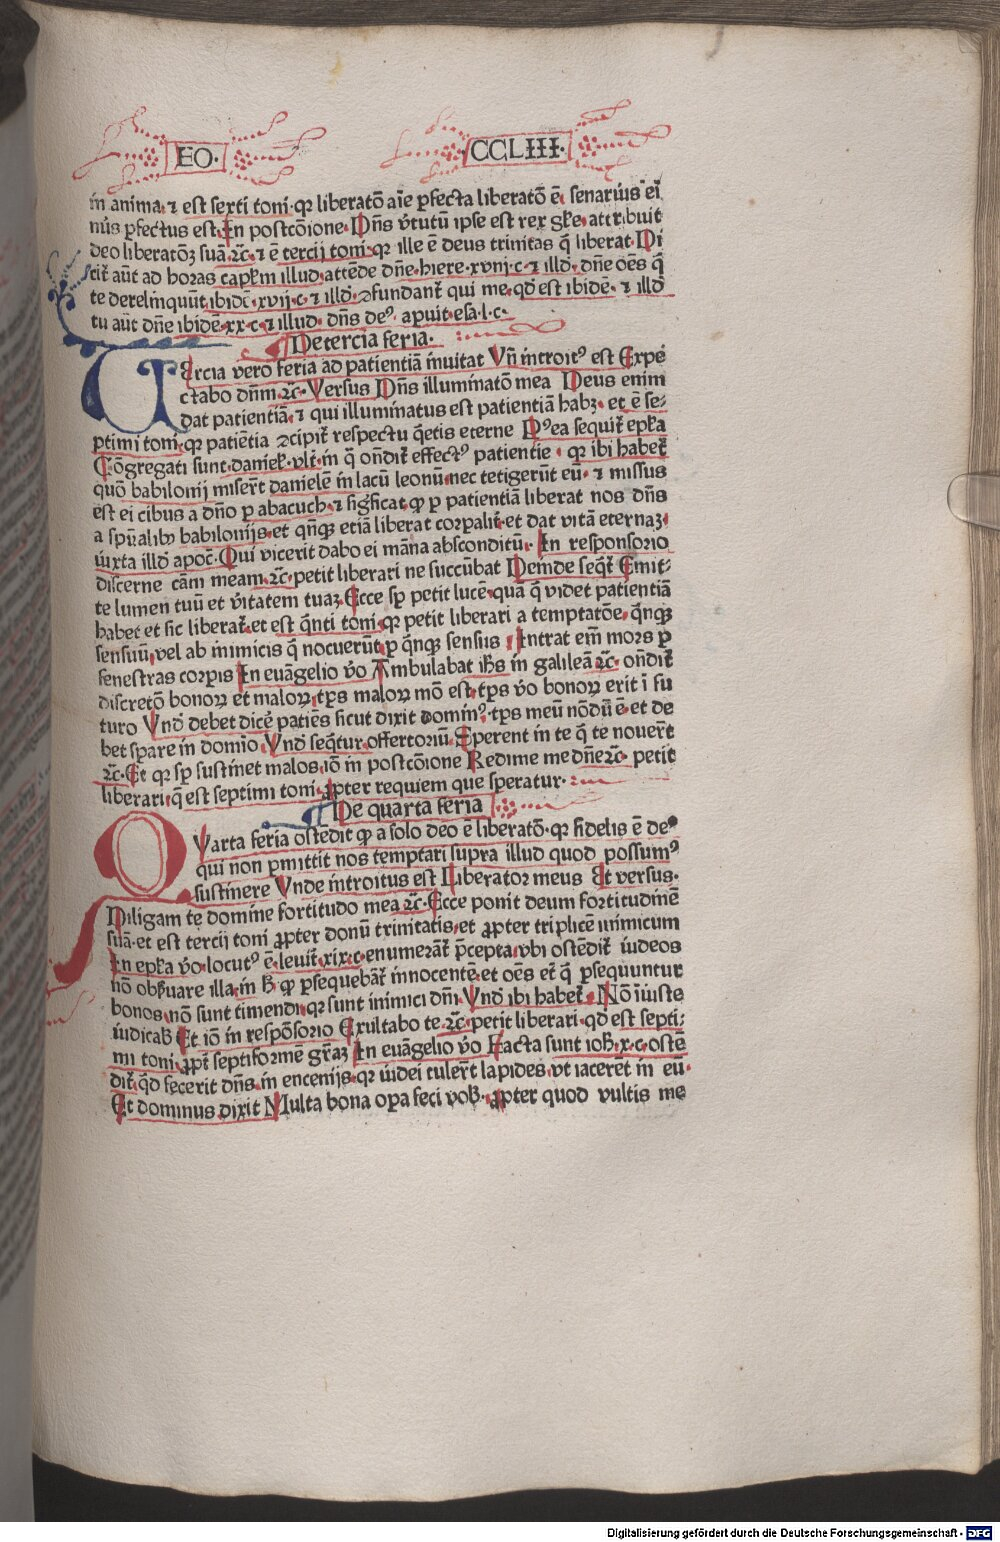 EO· CCLIII·
in anima· ⁊ est sexti toni· qꝛ liberatō aīe ꝑfecta liberatō ē· senarius eī
nus ꝑfectus est· In postcōione· Dn̄s v̄tutū ipse est rex gl̄e· attribuit
deo liberatōꝫ suā ⁊c̄· ⁊ ē tercij toni· qꝛ ille ē deus trinitas q̄ liberat· Di
cit̄ aūt ad horas capl̄em illud· attēde dn̄e· hiere· xvnj· c· ⁊ illd̄· dn̄e oēs q̄
te derelinquūt· ibidē· xvij· c· ⁊ illd̄· ꝯfundant̄ qui me· qd̄ est ibidē· ⁊ illd̄
tu aūt dn̄e ibidē· xx· c· ⁊ illud· dn̄s deꝰ· apuit· esa· l· c·
De tercia feria·
TErcia vero feria ad patientiā inuitat Vn̄ introitꝰ est Expe
ctabo dn̄m ⁊c̄· Versus Dn̄s illuminatō mea Deus enim
dat patientiā· ⁊ qui illuminatus est patientiā habꝫ· et ē se-
ptimi toni· qꝛ patiētia ꝯcipit̄ respectu q̄etis eterne Pꝰea sequit̄ ep̄ka
Cōgregati sunt· daniel̄· vlt̄· in q̄ ondit̄ effectꝰ patientie· qꝛ ibi habet̄
quō babilonij miser̄t danielē in lacū leonū· nec tetigerūt eū· ⁊ missus
est ei cibus a dn̄o ꝑ abacuch· ⁊ significat ꝙ ꝑ patientiā liberat nos dn̄s
a spūalibꝫ babilonijs· et qn̄qꝫ etiā liberat corpalit̄· et dat vitā eternaꝫ·
iuxta illd̄ apoc̄· Qui vicerit dabo ei māna absconditū· In responsorio
discerne cām meam ⁊c̄· petit liberari ne succūbat Deinde seqt̄ Emit-
te lumen tuū et v̄itatem tuaꝫ Ecce sꝑ petit lucē· quā q̄ videt patientiā
habet et sic liberat̄· et est q̄nti toni· qꝛ petit liberari a temptatōe· q̄nqꝫ
sensuū· vel ab inimicis q̄ nocuerūt ꝑ q̄nqꝫ sensus· Intrat em̄ mors ꝑ
fenestras corpis In euāgelio v̄o Ambulabat ih̄s in galileā ⁊c̄· ondit̄
discretō bonoꝝ et maloꝝ· tp̄s maloꝝ mō est· tp̄s v̄o bonoꝝ erit ī fu
turo Vnd̄ debet dicē patiēs sicut dixit dominꝰ· tp̄s meū nōdū ē· et de
bet sꝑare in domīo Vnd̄ seq̄tur offertoriū Sperent in te q̄ te nouer̄t
⁊c̄· Et qꝛ sꝑ sustinet malos· iō in postcōione Redime me dn̄e ⁊c̄· petit
liberari· q̄ est septimi toni· ꝓpter requiem que speratur·
De quarta feria
QVarta feria ostēdit ꝙ a solo deo ē liberatō· qꝛ fidelis ē deꝰ
qui non ꝑmittit nos temptari supra illud quod possumꝰ
sustinere Vnde introitus est Liberator meus Et versus·
Diligam te domine fortitudo mea ⁊c̄· Ecce ponit deum fortitudinē
suā· et est tercij toni ꝓpter donū trinitatis· et ꝓpter triplicē inimicum
In ep̄ka v̄o· locutꝰ ē· leuit̄· xix· c· enumerāt̄ p̄cepta· vbi ostēdit̄ iudeos
nō obs̄uare illa· in h̄ ꝙ ꝑsequebāt̄ innocentē· et oēs et̄ q̄ ꝑsequuntur
bonos· nō sunt timendi· qꝛ sunt inimici dn̄i· Vnd̄ ibi habet̄· Nō īiuste
iudicab̄ Et iō in respōsorio Exultabo te ⁊c̄· petit liberari· qd̄ est septi-
mi toni· ꝓpt̄ septiformē gr̄aꝫ In euāgelio v̄o Facta sunt ioh̄· x· c· ostē
dit̄ q̄d fecerit dn̄s in encenijs· qꝛ iudei tuler̄t lapides· vt iacerēt in eū·
Et dominus dixit Multa bona oꝑa feci vob̄· ꝓpter quod vultis me
Digitalisierung gefördert durch die Deutsche Forschungsgemeinschaft - DFG